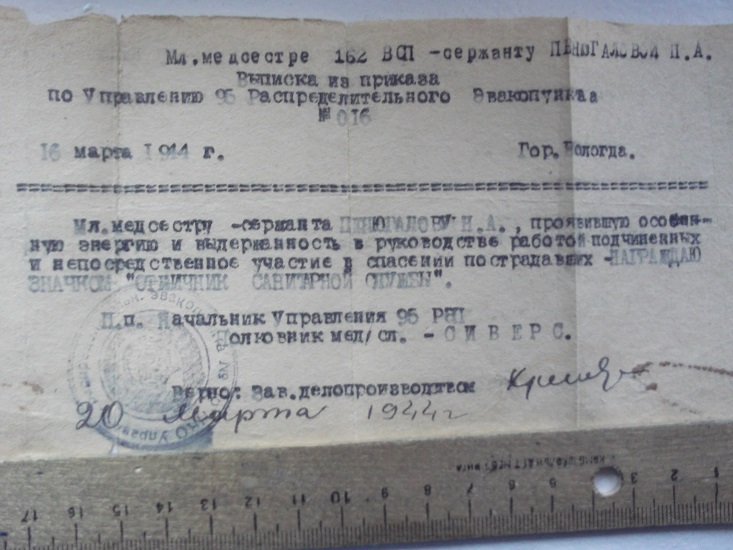 Мл.медсестре 162 ВСП -сержанту ПЕНЮГАЛОВОЙ Н.А.
Выписка из приказа
по Управлению 95 Распределительного Эвакопункта
№ 016
16 марта 1944 г. Гор.Вологда.
Мл.медсестру -сержанта ПЕНЮГАЛОВУ Н.А., проявившую особен-
ную энергию и выдержанность в руководстве работой подчиненных
и непосредственное участие в спасении пострадавших -НАГРАЖДАЮ
ЗНАЧКОМ "ОТЛИЧНИК САНИТАРНОЙ СЛУЖБЫ".
П.п. Начальник Управления 95 РЭП
Полковник мед/сл. - С И В Е Р С.
Верно: Зав.делопроизводством
20 марта 1944 г
17 16 15 14 13 12 11 10 9 8 7 6 5 4 3 2 1